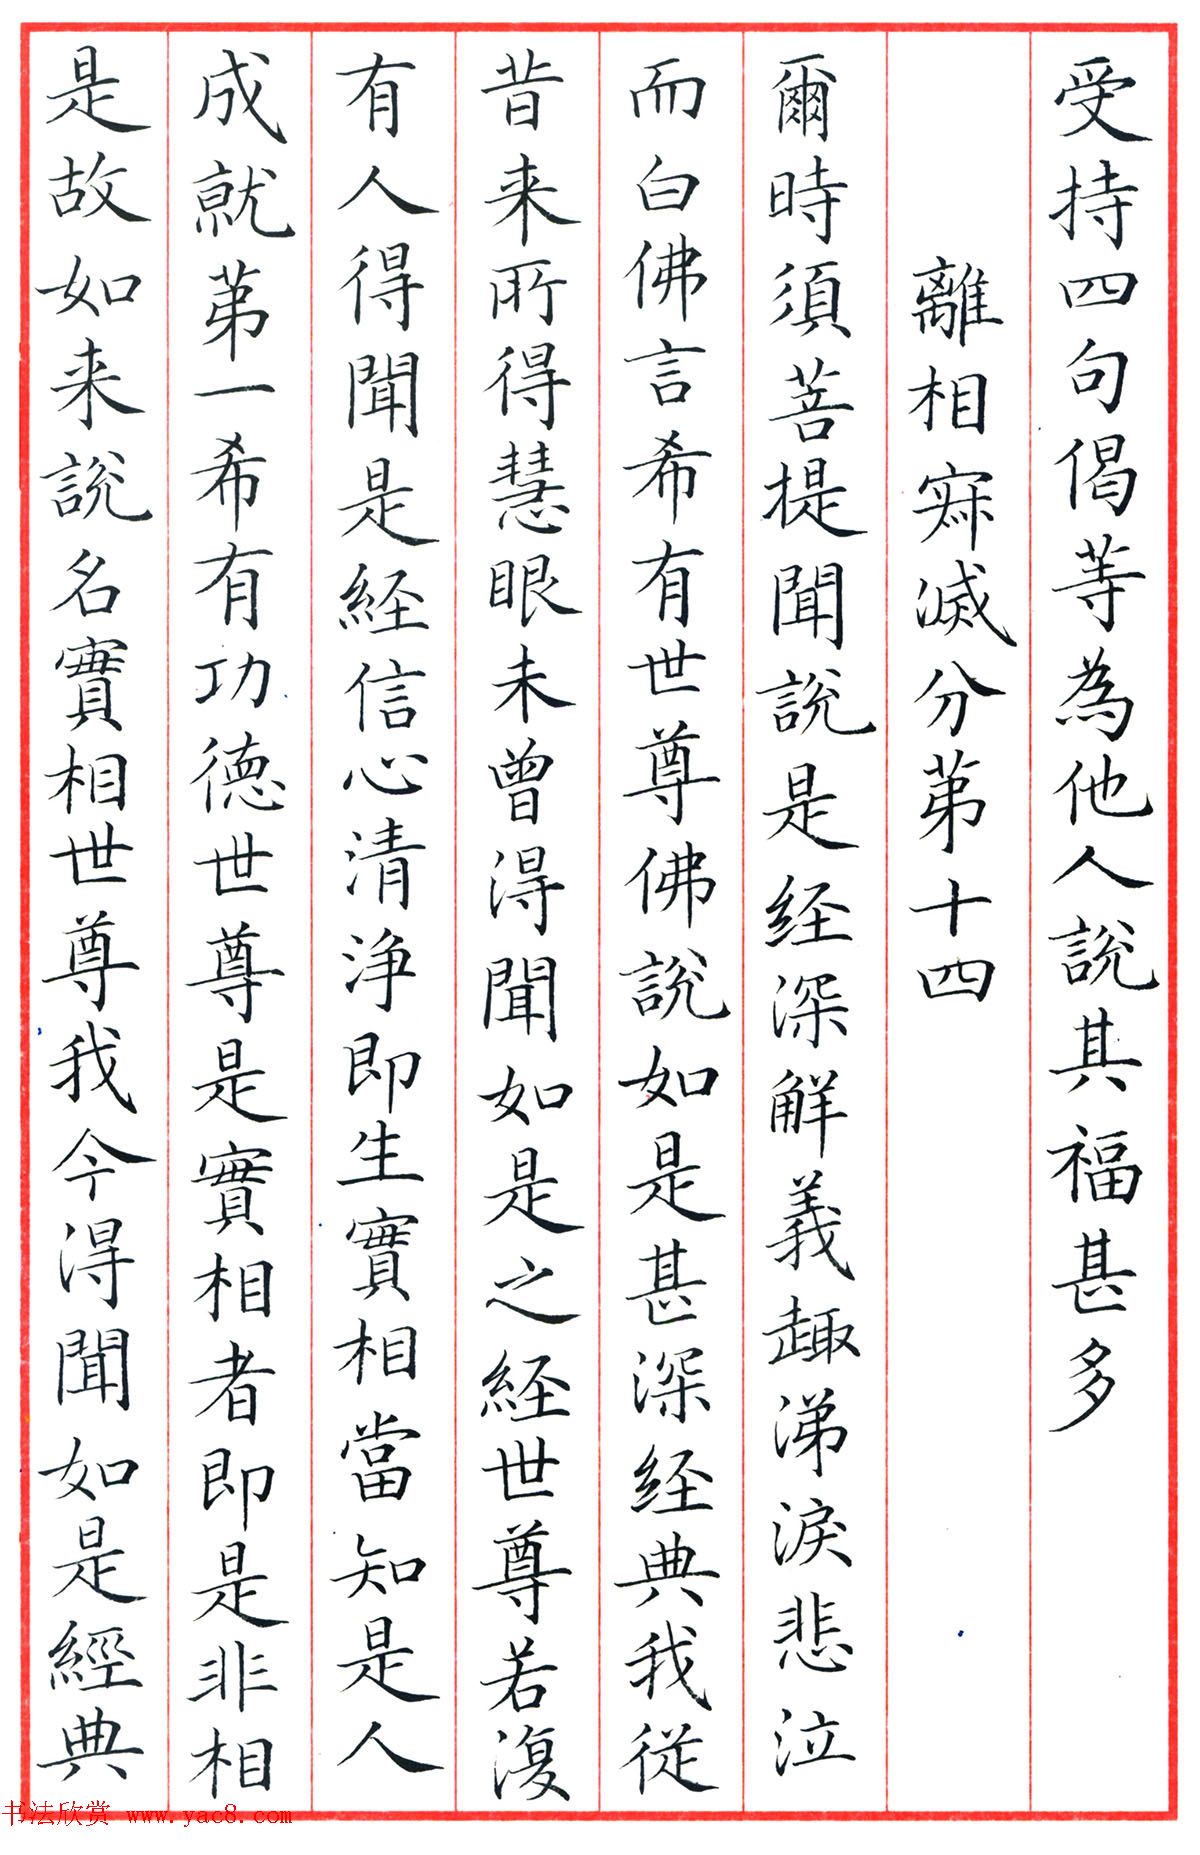 受持四句偈等為他人說其福甚多
離相寂滅分第十四
爾時須菩提聞說是経深解義趣涕淚悲泣
而白佛言希有世尊佛說如是甚深経典我從
昔来所得慧眼未曾得聞如是之経世尊若復
有人得聞是経信心清浄即生實相當知是人
成就第一希有功德世尊是實相者即是非相
是故如来說名實相世尊我今得聞如是經典
书法欣赏 www.yac8.com